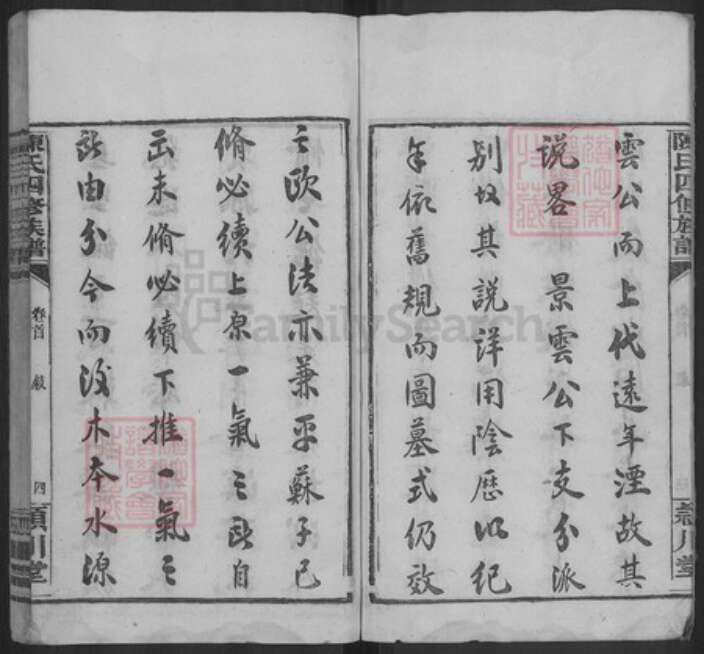 陳氏四修族譜
卷首
敍
雲公而上代遠年湮故其
說畧 景雲公下支分派
別故其說詳用陰歷以紀
年依舊規而圖墓式仍效
之歐公法亦兼乎蘇子已
脩必續上原一氣之所自
出未脩必續下推一氣之
所由分今而後木本水源
陳氏四修族譜
卷首
敍
四
潁川堂
FamilySearch